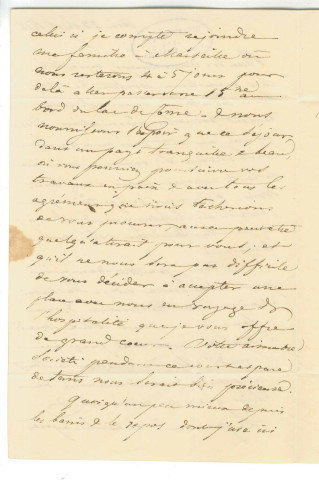 celui ci je compte rejoindre
ma famille à Marseille où
nous resterons 4 à 5 jours pour
delà aller passer une 15ne au
bord du lac de Come. & nous
nourrissons l'espoir que ce séjour
dans un pays tranquille & beau
où vous pourriez poursuivre vos
travaux en paix & avec tous les
agréments que nous tâcherions
de vous procurer aura peut être
quelqu'attrait pour vous, et
qu'il ne nous sera pas difficile
de vous décider à accepter une
place avec nous en voyage &
l'hospitalité que je vous offre
de grand coeur. Votre aimable
Société pendant ce court espace
de tems nous serait bien précieuse.
Quoiqu'un peu mieux depuis
les bains & le repos dont j'use ici